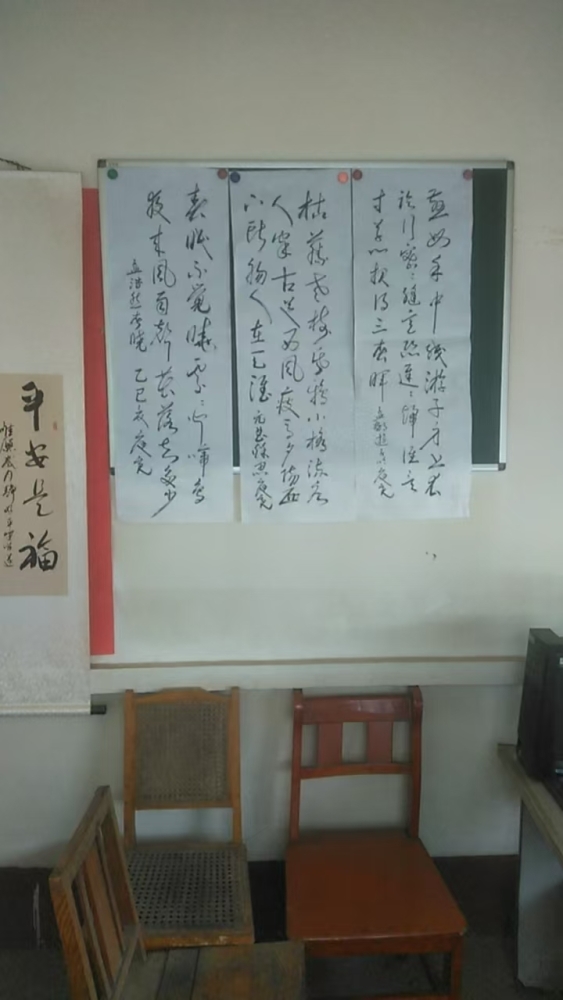 慈母手中线游子身上衣
临行密密缝意恐迟迟归谁言
寸草心报得三春晖 孟郊游子吟
枯藤老树昏鸦小桥流水
人家古道西风瘦马夕阳西
下断肠人在天涯 元曲秋思
春眠不觉晓处处闻啼鸟
夜来风雨声花落知多少
孟浩然春晓 乙巳
平安是福